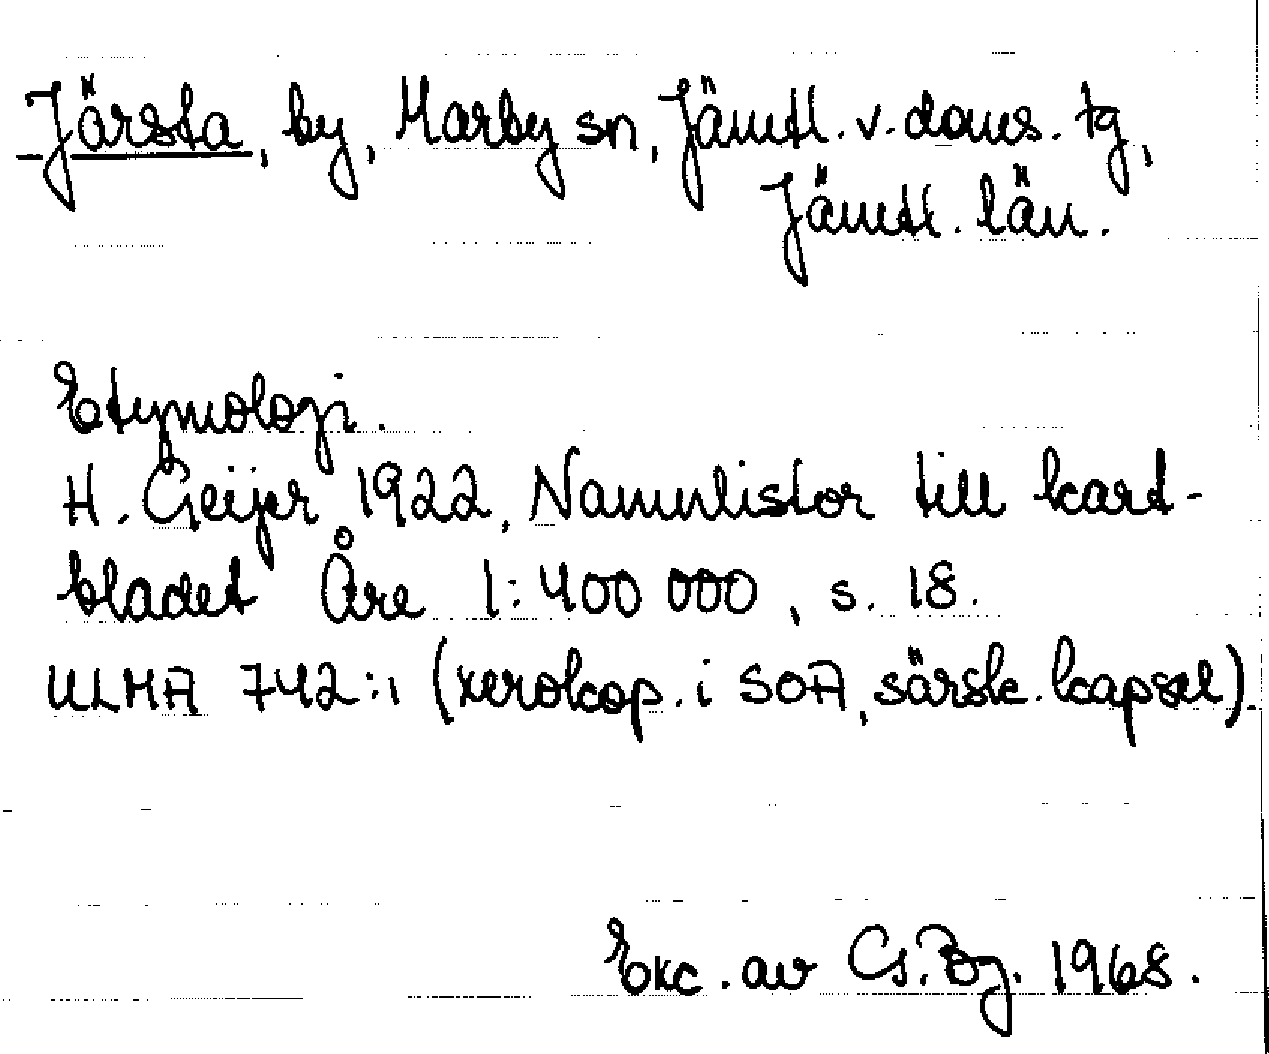 Järsta, by, Marby sn, Jämtl. v. doms. tg,
Jämtl. län.
Etymologi.
H. Geijer 1922, Namnlistor till kart-
bladet Åre 1:400 000, s. 18.
ULMA 742:1 (xerokop. i SOA, särsk. kapsel).
Exc. av G. Bj. 1968.